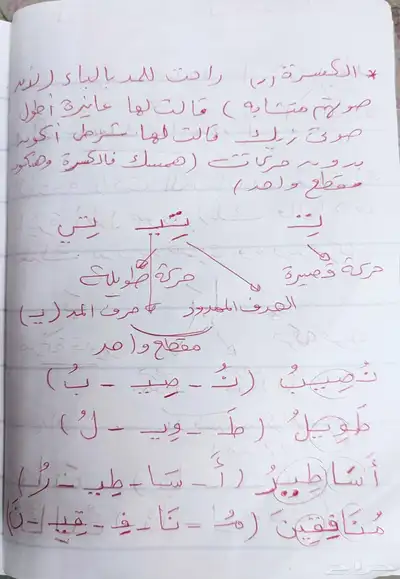 * الكسرة (ـِ) راحت للمد بالياء (لأن
صوتهم متشابه) قالت لها عايزة أطول
صوتي زيك قالت لها شرط أكون
بدون حركات (همسك فالكسرة وهنكون
مقطع واحد)
تِ تِيـ تِي
حركة قصيرة حركة طويلة
الحرف الممدود حرف المد (ي)
مقطع واحد
نُصِيبُ (نُ - صِيـ - بُ)
طَوِيلُ (طَ - وِيـ - لُ)
أَسَاطِيرُ (أَ - سَا - طِيـ - رُ)
مُنَافِقِينَ (مُـ - نَا - فِـ - قِيـ - نَ)
حراج